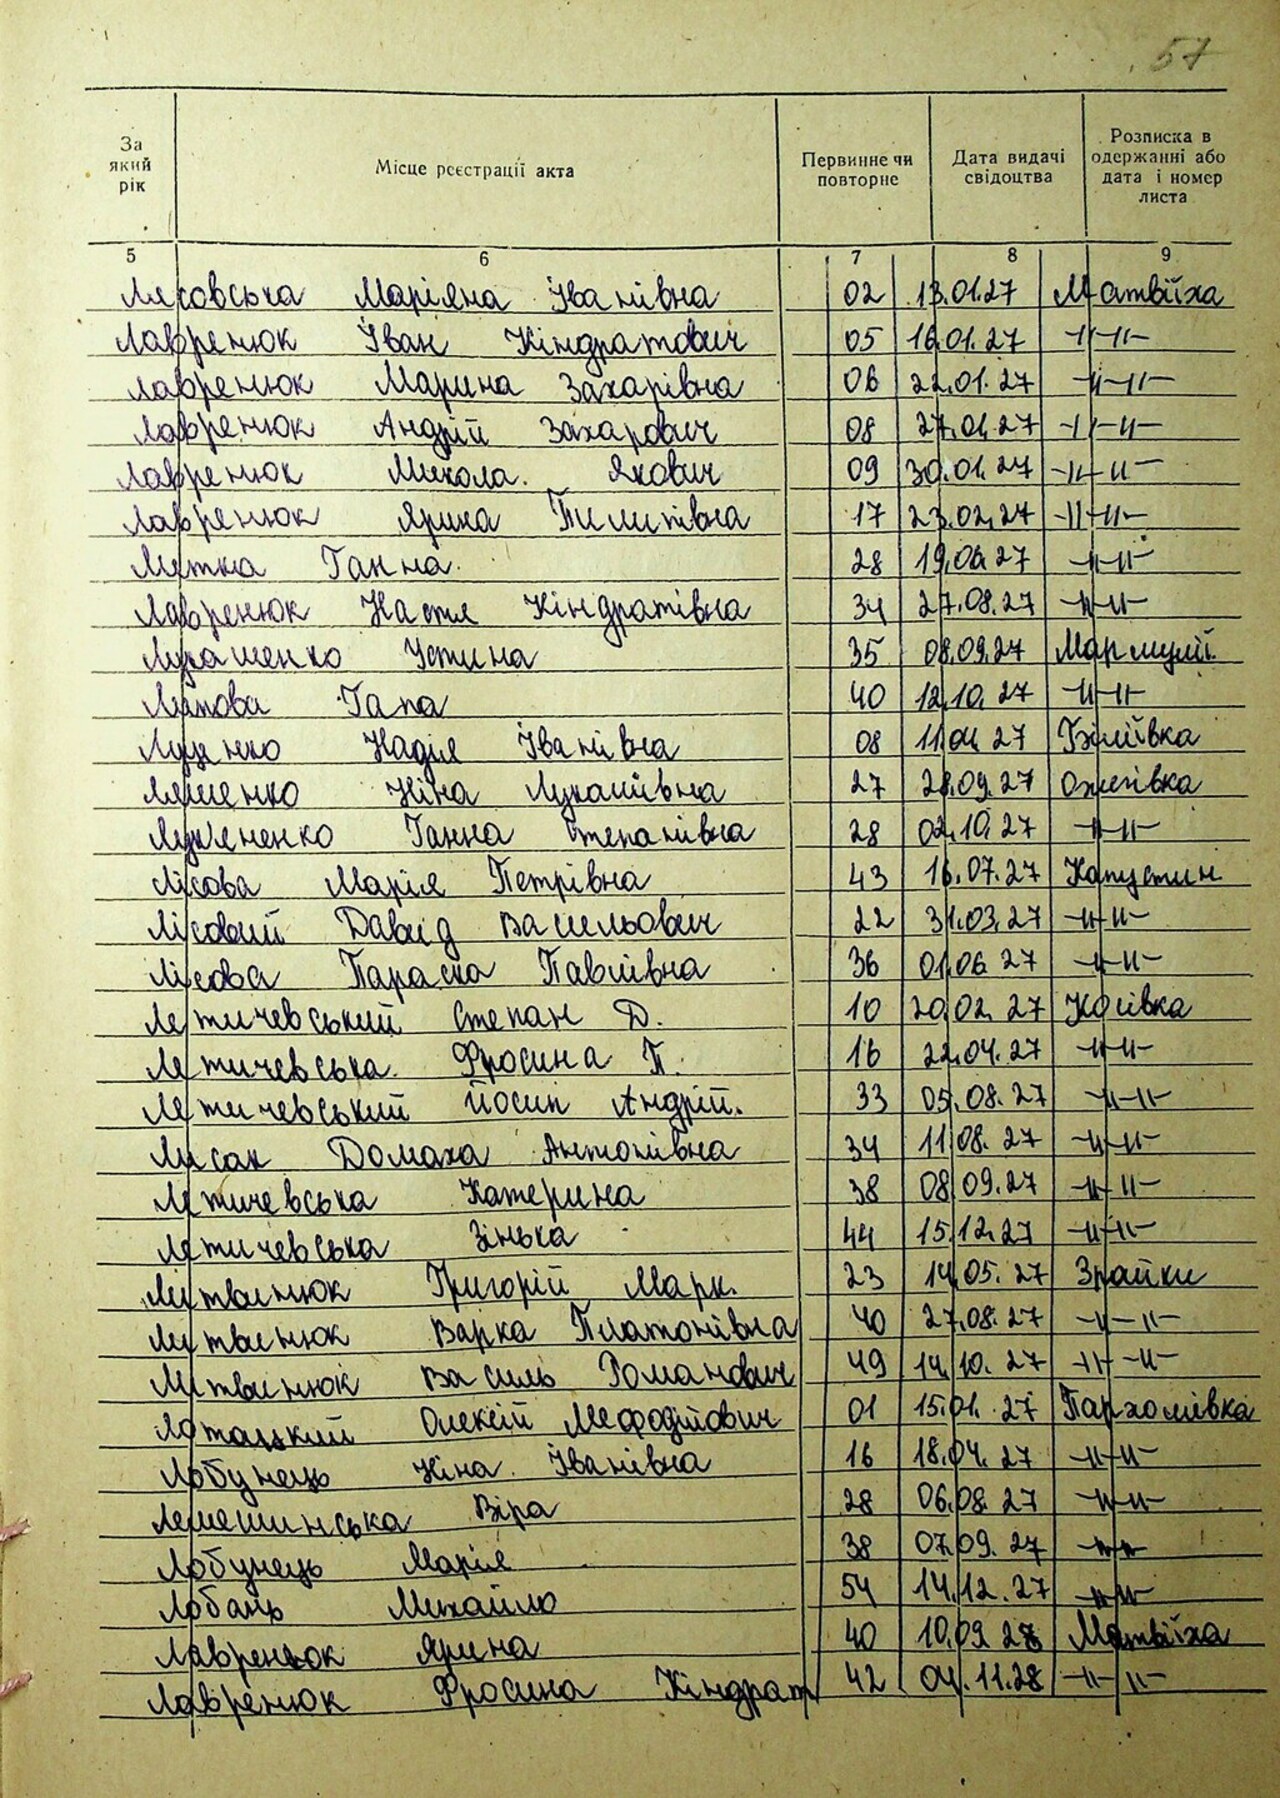 57
За який рік
Місце реєстрації акта
Первинне чи повторне
Дата видачі свідоцтва
Розписка в одержанні або дата і номер листа
5 6 7 8 9
Лясовська Маріяна Іванівна 02 13.01.27 Матвіїха
Лавренюк Іван Кіндратович 05 16.01.27 -//-//-
Лавренюк Марина Захарівна 06 22.01.27 -//-//-
Лавренюк Андрій Захарович 08 27.01.27 -//-//-
Лавренюк Микола Якович 09 30.01.27 -//-//-
Лавренюк Ярина Пилипівна 17 23.02.27 -//-//-
Литка Ганна 28 19.06.27 -//-//-
Лавренюк Настя Кіндратівна 34 27.08.27 -//-//-
Лукашенко Устина 35 08.09.27
Липова Гапа 40 12.10.27 -//-//-
Луценко Надія Іванівна 08 11.04.27 Біліївка
Ляшенко Ніна Лукашівна 27 28.09.27 Ожегівка
Лук'яненко Ганна Степанівна 28 02.10.27 -//-//-
Лісова Марія Петрівна 43 16.07.27 Капустин
Лісовий Давид Васильович 22 31.03.27 -//-//-
Лісова Параска Павлівна 36 01.06.27 -//-//-
Летичевський Степан Д. 10 20.02.27 Косівка
Летичевська Фросина П. 16 22.04.27 -//-//-
Летичевський Йосип Андрій. 33 05.08.27 -//-//-
Лисак Домаха Антонівна 34 11.08.27 -//-//-
Летичевська Катерина 38 08.09.27 -//-//-
Летичевська Зінька 44 15.12.27 -//-//-
Литвинюк Григорій Марк. 23 14.05.27 Зрайки
Литвинюк Варка Платонівна 40 27.08.27 -//-//-
Литвинюк Василь Романович 49 14.10.27 -//-//-
Лотоцкий Олексій Мефодійович 01 15.01.27 Пархомівка
Лобунець Ніна Іванівна 16 18.04.27 -//-//-
Лемешинська Віра 28 06.08.27 -//-//-
Лобунець Марія 38 07.09.27 -//-//-
Лобань Михайло 54 14.12.27 -//-//-
Лавренюк Ярина 40 10.09.28 Матвіїха
Лавренюк Фросина Кіндрат 42 04.11.28 -//-//-